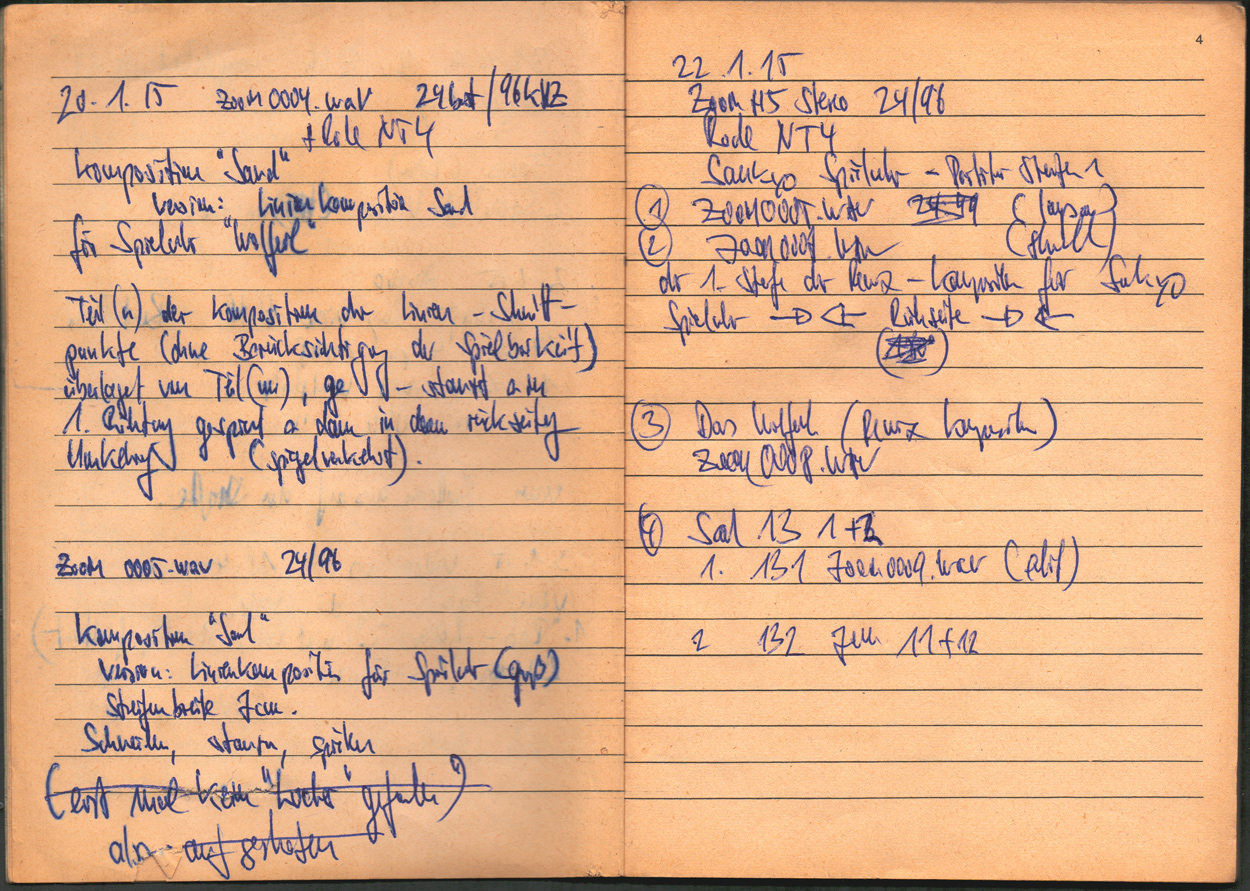 20.1.15 Zoom0004.wav 24bit/96kHz
+ Rode NT4
Komposition "Sand"
Version: Linienkomposition Sand
für Spieluhr "Koffer"
Teil (a) der Komposition der Linien-Schnitt-
punkte (ohne Berücksichtigung der Spielbarkeit)
überlagert von Teil ge-stanzt
1. Richtung gespielt dann in dem rückseitig
Umkehrung (spiegelverkehrt).
Zoom 0005.wav 24/96
Komposition "Sand"
Version: Linienkomposition für Spieluhr (groß)
Streifenbreite 7cm.
Schneiden, stanzen, spielen
(erst mal kein "Locher" gefunden)
also aufgeschoben
4
22.1.15
Zoom H5 Stereo 24/96
Rode NT4
Sankyo Spieluhr - Partitur Streifen 1
① (langsam)
② (schnell)
der 1. der - Komposition für Sankyo
Spieluhr → ← Rückseite → ←
③ Das Koffer ( Komposition)
Zoom0008.wav
④ Sand 13 1+2
1. 131 Zoom0009.wav
2 132 Zoom 11+12